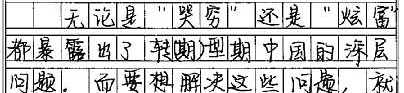 无论是“哭穷”还是“炫富”
都暴露出了转(期)型期中国的深层
问题。而要想解决这些问题，就